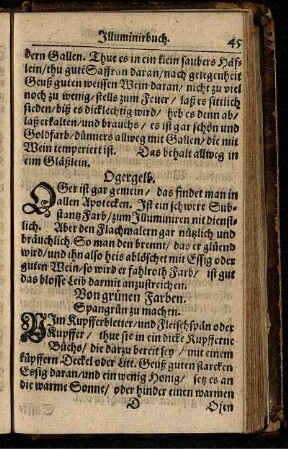 Illuminirbuch. 45
dern Gallen. Thue es in ein klein saubers Häf-
lein/thu gute Saffran daran/nach gelegenheit
Geuß guten weissen Wein daran/ nicht zu viel
noch zu wenig/stells zum Feuer/ laß es sittlich
sieden/biß es dicklechtig wird/ heb es denn ab/
laß erkalten/und brauchs/ es ist gar schön und
Goldfarb/dünners allweg mit Gallen/die mit
Wein temperiert ist. Das behalt allweg in
eim Gläßlein.
Ogergelb.
OGer ist gar gemein/ das findet man in
allen Apotecken. Ist ein schwere Sub-
stantz Farb/zum Illuminiren nit dienst-
lich. Aber den Flachmalern gar nützlich und
bräuchlich. So man den brennt/ das er glüend
wird/und ihn also heis ablöschet mit Essig oder
guten Wein/so wird er fahlroth Farb/ ist gut
das blosse Leib darmit anzustreichen.
Von grünen Farben.
Spangrün zu machen.
NIm Kupfferbletter/und Fleischspän oder
Kupffer/ thue sie in ein dicke Kupfferne
Büchs/ die darzu bereit sey/ mit einem
küpffern Deckel oder Litt. Geuß guten starcken
Essig daran/und ein wenig Honig/ setz es an
die warme Sonne/ oder hinder einen warmen
D Ofen